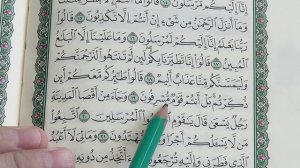 إِلَيْكُم مُّرْسَلُونَ ١٤ قَالُوا۟ مَآ
وَمَآ أَنزَلَ ٱلرَّحْمَٰنُ مِن شَىْءٍ إِنْ أَنتُمْ إِلَّا تَكْذِبُونَ ١٥ قَالُوا۟
رَبُّنَا يَعْلَمُ إِنَّآ إِلَيْكُمْ لَمُرْسَلُونَ ١٦ وَمَا عَلَيْنَآ إِلَّا ٱلْبَلَٰغُ
ٱلْمُبِينُ ١٧ قَالُوٓا۟ إِنَّا تَطَيَّرْنَا بِكُمْ لَئِن لَّمْ تَنتَهُوا۟ لَنَرْجُمَنَّكُمْ
وَلَيَمَسَّنَّكُم مِّنَّا عَذَابٌ أَلِيمٌ ١٨ قَالُوا۟ طَٰٓئِرُكُم مَّعَكُمْ أَئِن
ذُكِّرْتُم بَلْ أَنتُمْ قَوْمٌ مُّسْرِفُونَ ١٩ وَجَآءَ مِنْ أَقْصَا ٱلْمَدِينَةِ
رَجُلٌ يَسْعَىٰ قَالَ يَٰقَوْمِ ٱلْمُرْسَلِينَ ٢٠ ٱتَّبِعُوا۟
مَن لَّا يَسْـَٔلُكُمْ أَجْرًا مُّهْتَدُونَ ٢١ وَمَا لِىَ لَآ أَعْبُدُ
ٱلَّذِى فَطَرَنِى وَإِلَيْهِ تُرْجَعُونَ ءَأَتَّخِذُ مِن دُونِهِۦٓ